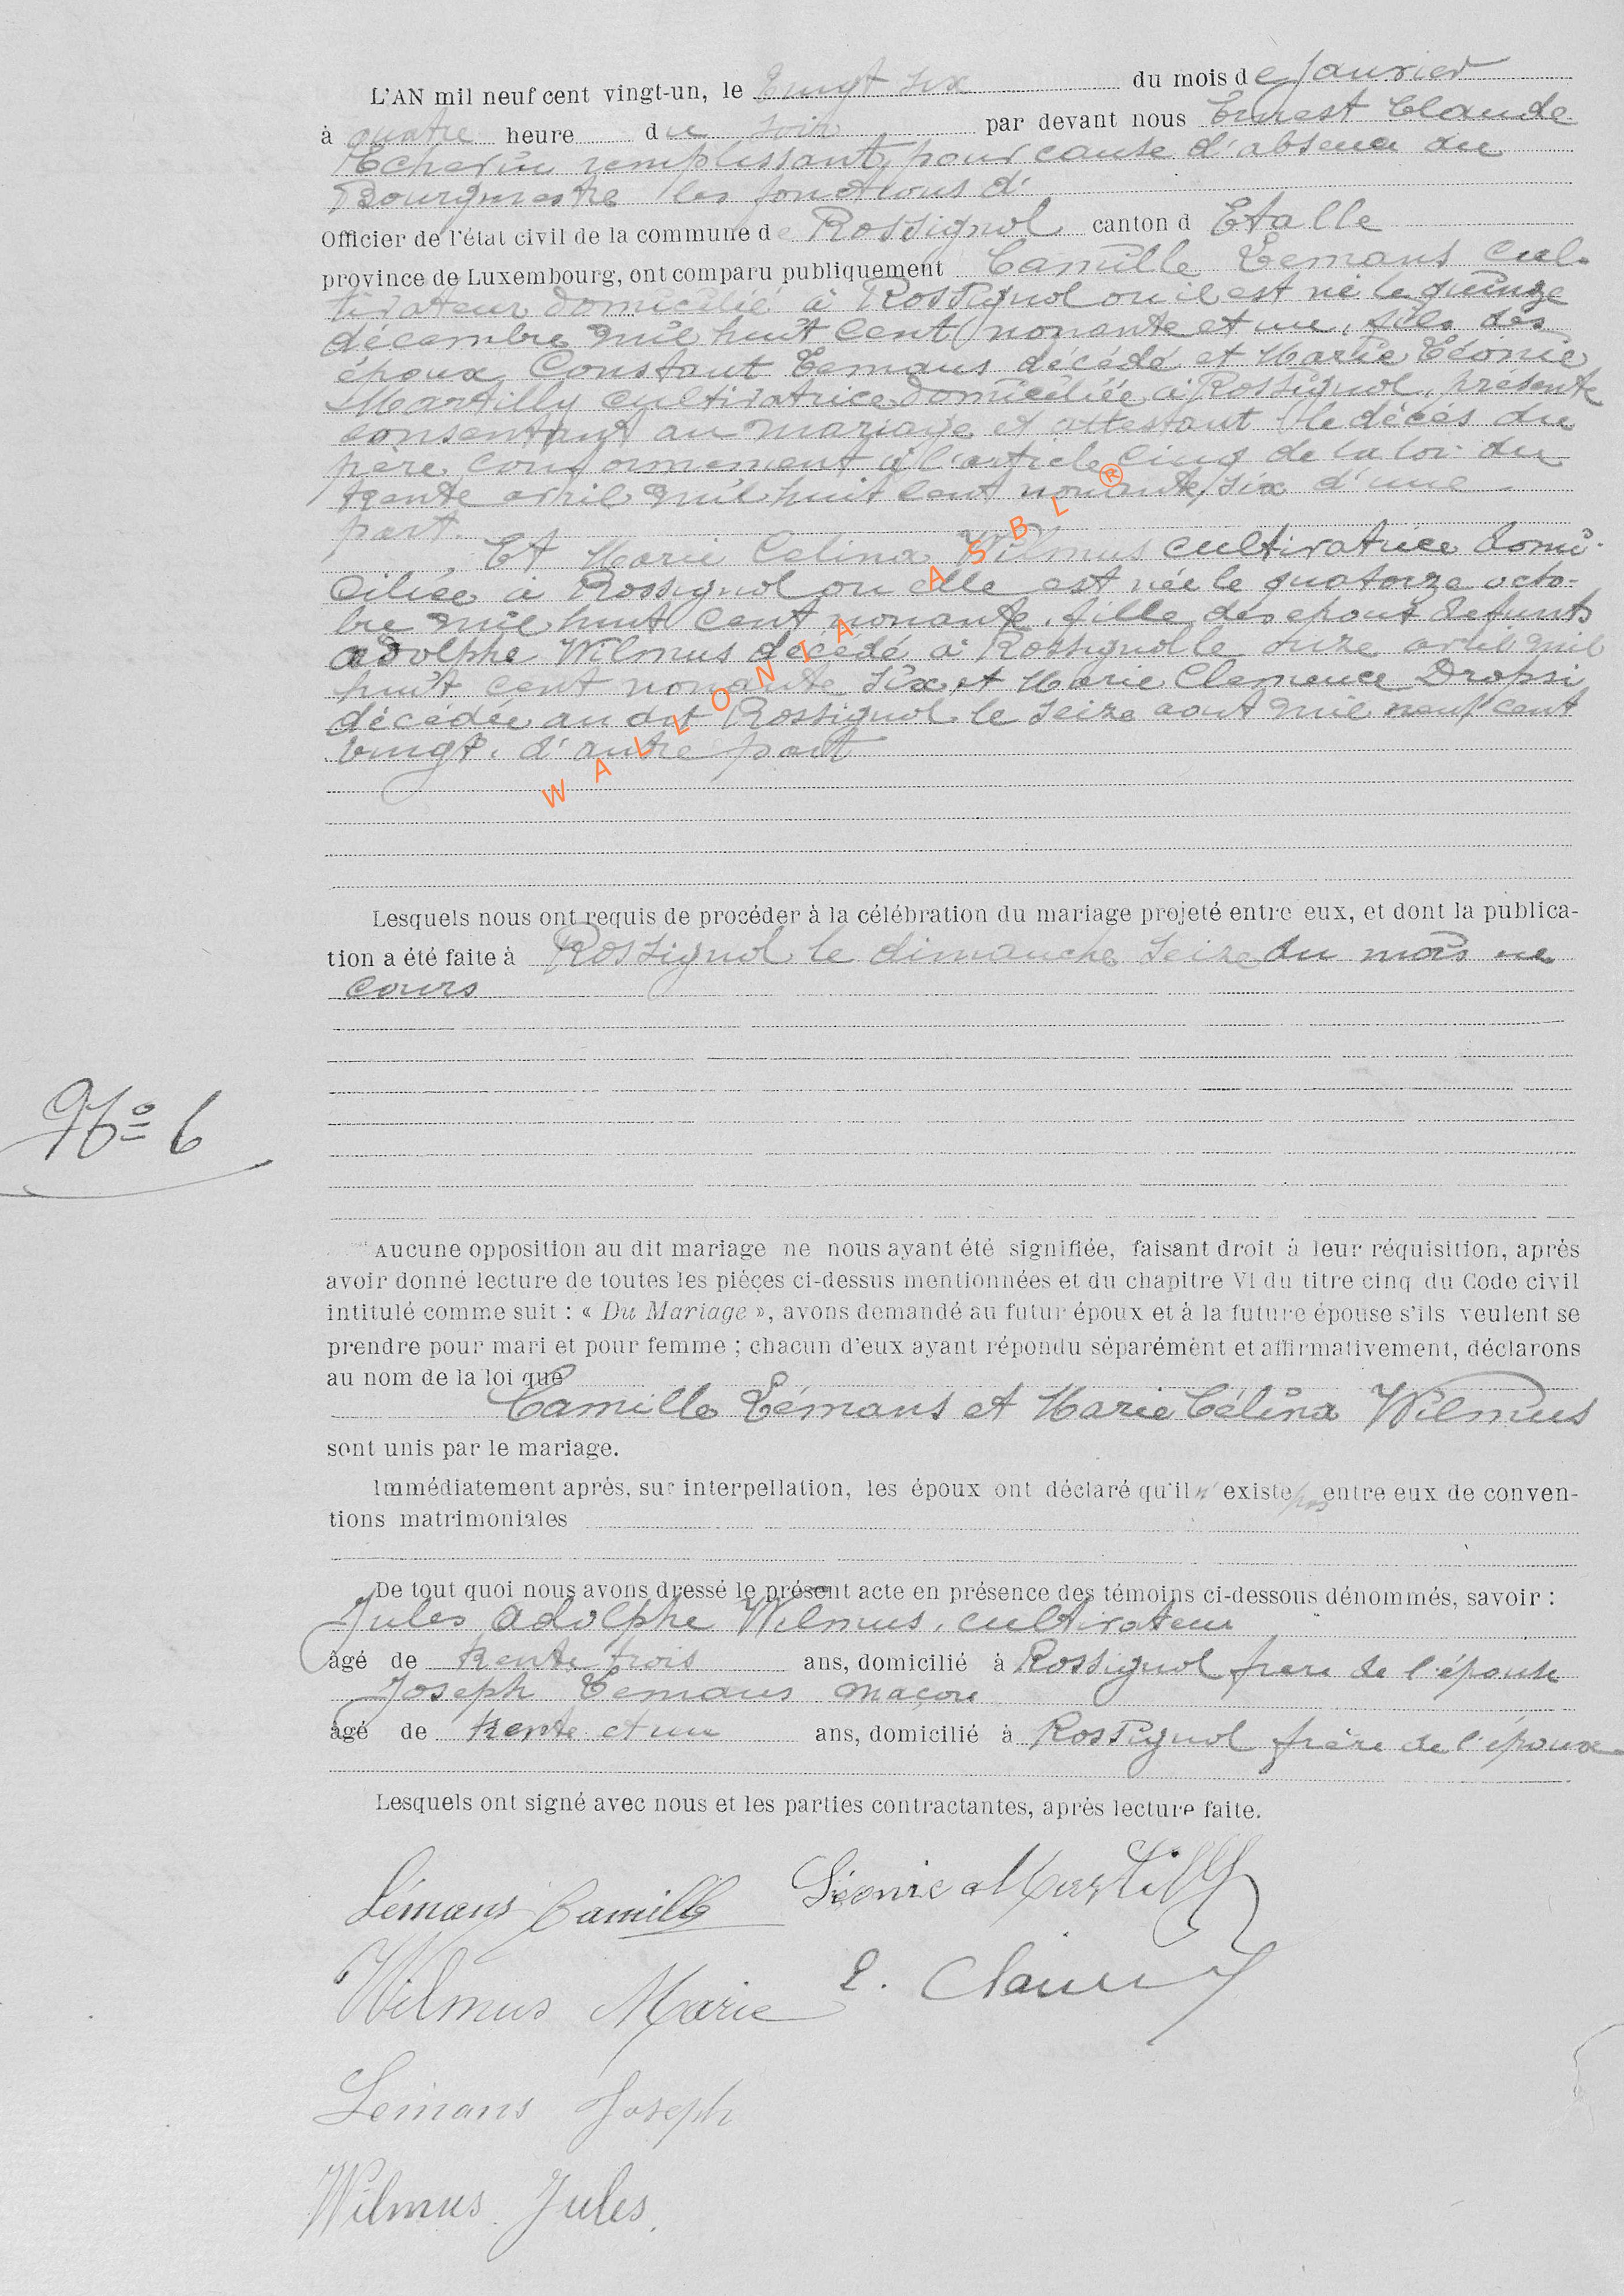 L'AN mil neuf cent vingt-un, le vingt six du mois de Janvier
à quatre heure du soir par devant nous Ernest Claude
Echevin remplissant, pour cause d'absence du
Bourgmestre les fonctions d'
Officier de l'état civil de la commune de Rossignol canton d Etalle
province de Luxembourg, ont comparu publiquement Camille Lemans cul-
tivateur domicilié à Rossignol ou il est né le quinze
décembre mil huit cent nonante et un, fils des
époux Constant Lemans décédé et Marie Léonie
Martilly cultivatrice domiciliée à Rossignol, présente
consentant au mariage et attestant le décès du
père conformement à l'article cinq de la loi du
trente avril mil huit cent nonante six d'une
part.
Et Marie Celina Wilmus cultivatrice domi-
ciliée à Rossignol ou elle est née le quatorze octo-
bre mil huit cent nonante, fille des epoux defunts
Adolphe Wilmus décédé à Rossignol le avril mil
huit cent nonante six et Marie Clemence Dropsi
décédée au dit Rossignol le seize aout mil neuf cent
vingt, d'autre part
WALLONIA ASBL ®
Lesquels nous ont requis de procéder à la célébration du mariage projeté entre eux, et dont la publica-
tion a été faite à Rossignol le dimanche seize du mois en
cours
No 6
Aucune opposition au dit mariage ne nous ayant été signifiée, faisant droit à leur réquisition, après
avoir donné lecture de toutes les pièces ci-dessus mentionnées et du chapitre VI du titre cinq du Code civil
intitulé comme suit : « Du Mariage », avons demandé au futur époux et à la future épouse s'ils veulent se
prendre pour mari et pour femme ; chacun d'eux ayant répondu séparémènt et affirmativement, déclarons
au nom de la loi que
Camille Lémans et Marie Célina Wilmus
sont unis par le mariage.
Immédiatement après, sur interpellation, les époux ont déclaré qu'il n'existe pas entre eux de conven-
tions matrimoniales
De tout quoi nous avons dressé le présent acte en présence des témoins ci-dessous dénommés, savoir :
Jules Adolphe Wilmus, cultivateur
âgé de trente trois ans, domicilié à Rossignol frere de l'épouse
Joseph Lemans maçon
âgé de trente et un ans, domicilié à Rossignol frère de l'époux
Lesquels ont signé avec nous et les parties contractantes, après lecture faite.
Lémans Camille Léonie Martilly
Wilmus Marie E. Claude
Lemans Joseph
Wilmus Jules.